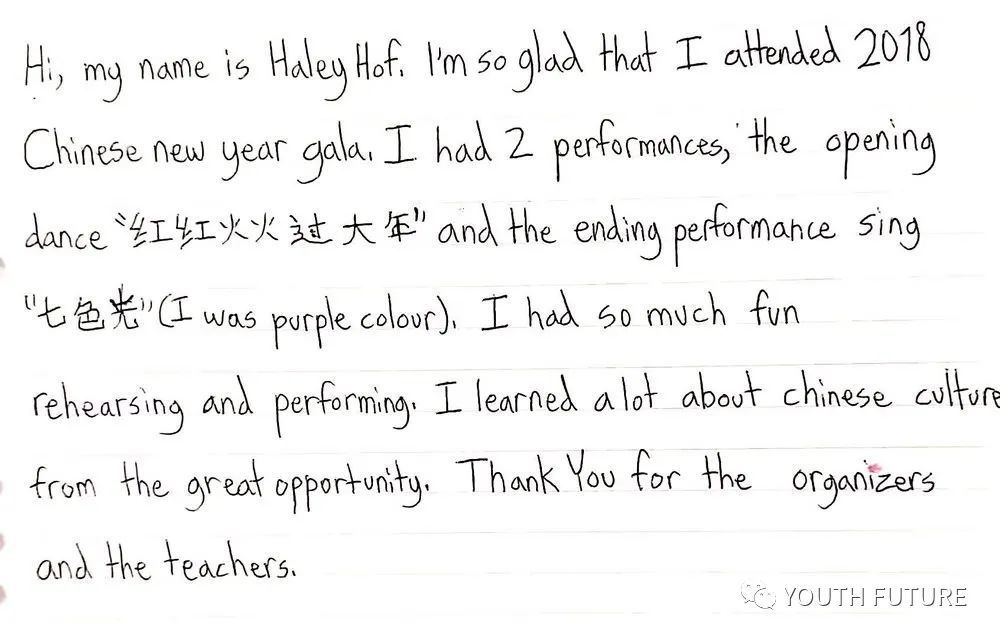 Hi, my name is Haley Hof. I'm so glad that I attended 2018
Chinese new year gala. I had 2 performances, the opening
dance "红红火火过大年" and the ending performance sing
"七色光" (I was purple colour). I had so much fun
rehearsing and performing. I learned a lot about chinese culture
from the great opportunity. Thank You for the organizers
and the teachers.
YOUTH FUTURE